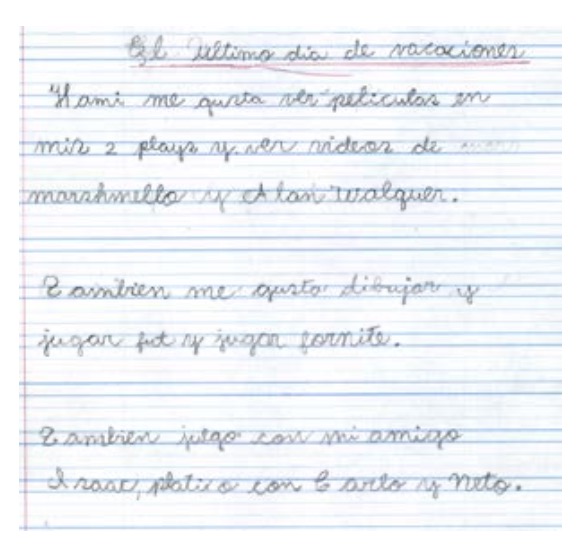 El ultimo dia de vacaciones
Hami me gusta ver peliculas en
mis 2 plays y ver videos de
marshmello y Alan Walquer.
Tambien me gusta dibujar y
jugar fut y jugar fornite.
Tambien juego con mi amigo
Isaac, platico con Carlo y Neto.